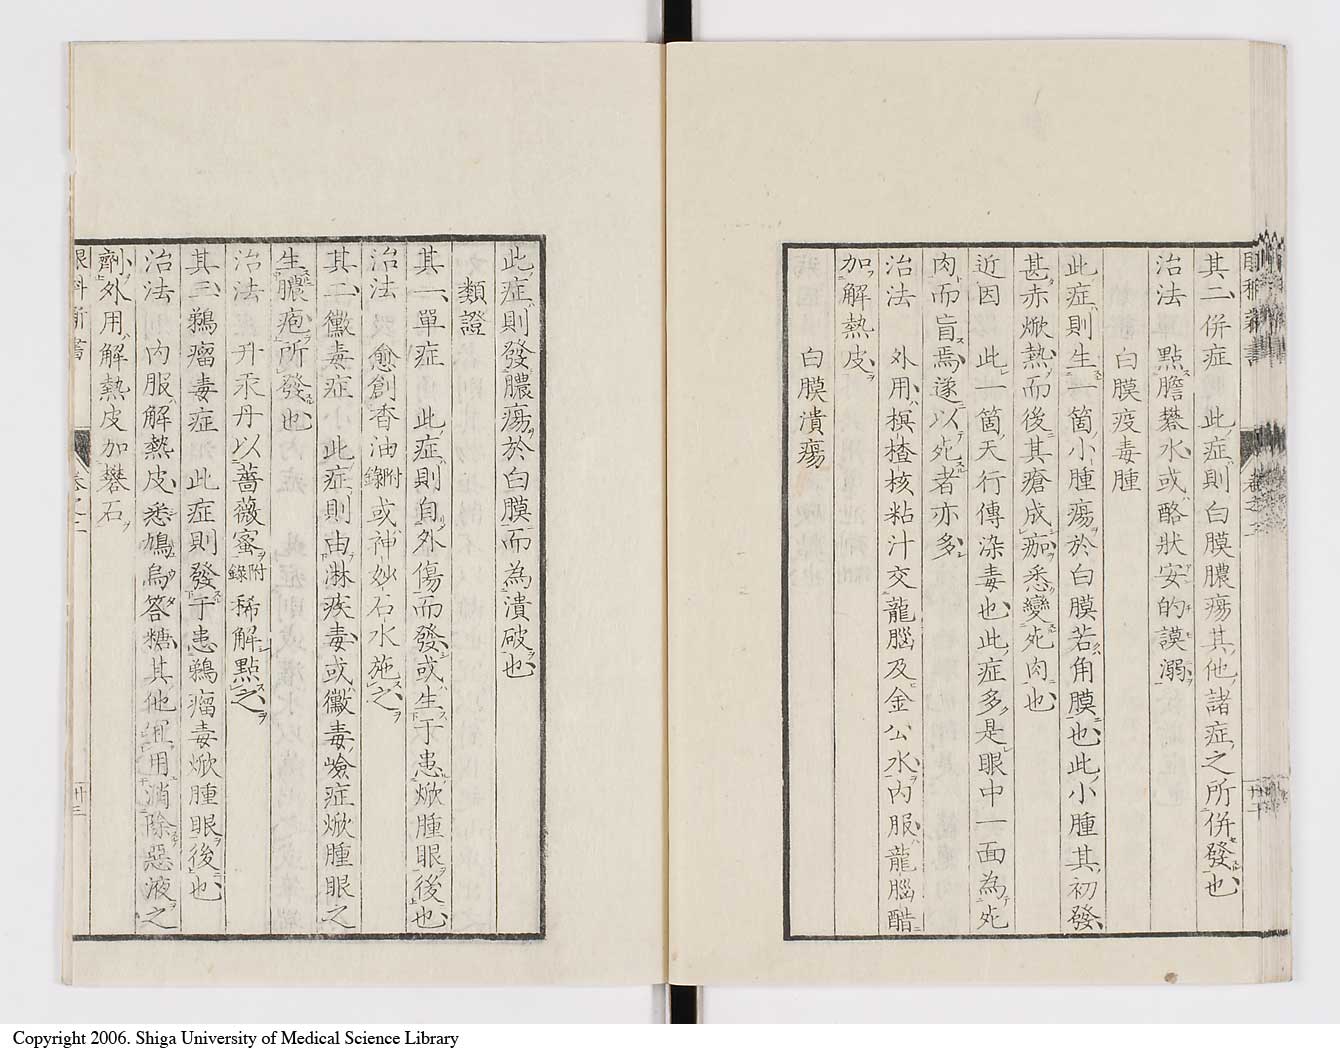 其二併症 此症則白膜膿瘍其他諸症之所併發也
治法 點膽礬水或酪狀安的謨溺
白膜疫毒腫
此症則生一箇小腫瘍於白膜若角膜也此小腫其初發
甚赤焮熱而後其瘡成痂悉變死肉也
近因 此一箇天行傳染毒也此症多是眼中一面為死
肉而盲焉遂以死者亦多
治法 外用榠樝核粘汁交龍腦及金公水內服龍腦醋
加解熱皮
白膜潰瘍
此症則發膿瘍於白膜而為潰破也
類證
其一單症 此症則自外傷而發或生于患焮腫眼後也
治法 愈創香油附錄或神妙石水施之
其二黴毒症 此症則由淋疾毒或黴毒嶮症焮腫眼之
生膿疱所發也
治法 升汞丹以薔薇蜜附錄稀解點之
其三鵝瘤毒症 此症則發于患鵝瘤毒焮腫眼後也
治法 內服解熱皮悉鳩烏答糖其他用消除惡液之
劑外用解熱皮加礬石
Copyright 2006. Shiga University of Medical Science Library